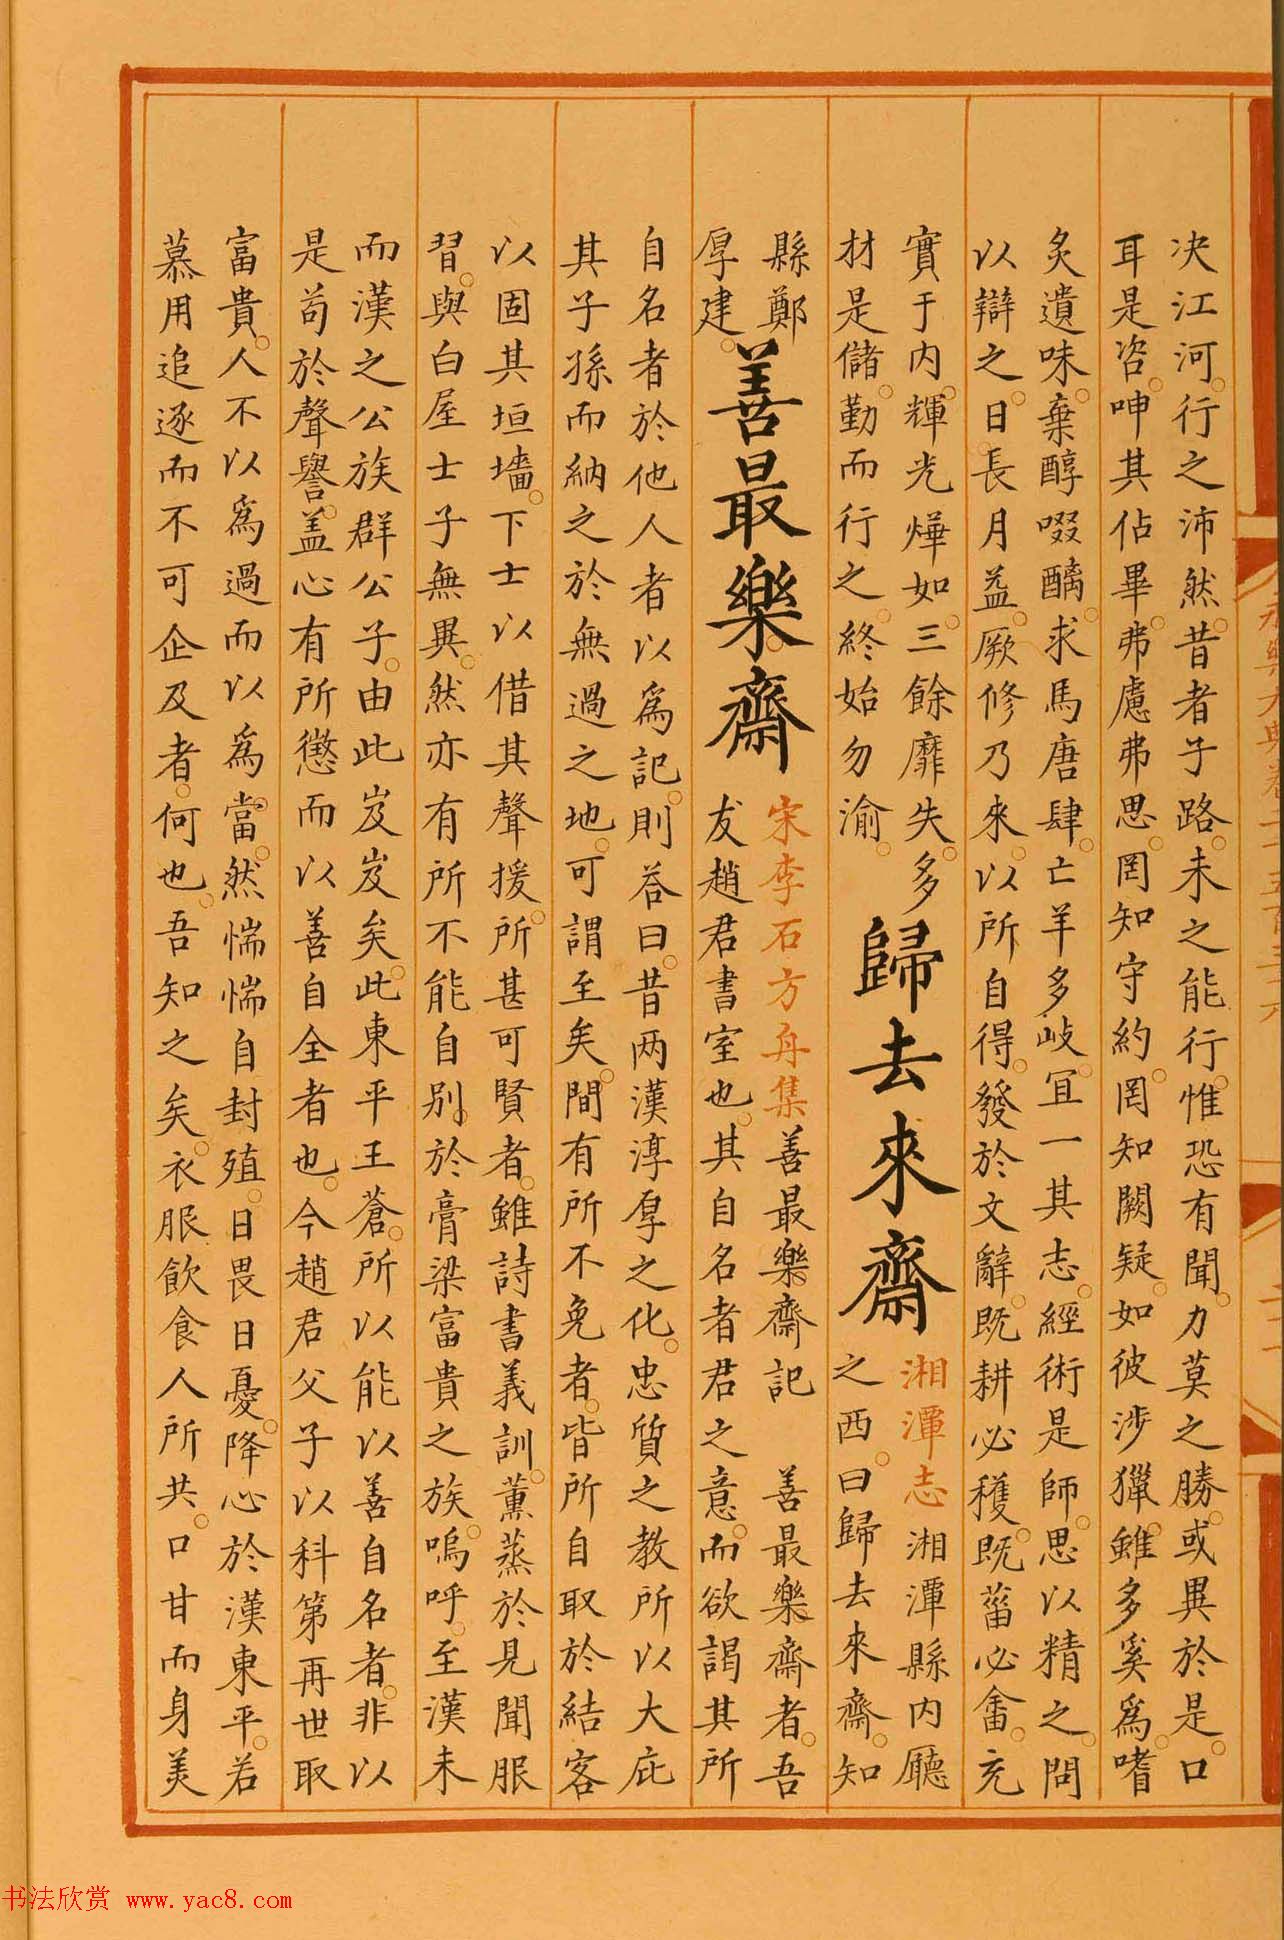 决江河。行之沛然。昔者子路。未之能行。惟恐有聞。力莫之勝。或異於是。口
耳是咨。呻其佔畢。弗慮弗思。罔知守約。罔知闕疑。如彼涉獵。雖多奚為。嗜
炙遺味。棄醇啜醨。求馬唐肆。亡羊多岐。宜一其志。經術是師。思以精之。問
以辯之。日長月益。厥修乃來。以所自得。發於文辭。既耕必穫。既菑必畬。充
實于内。輝光燁如。三餘靡失。多
材是儲。勤而行之。終始勿渝。
歸去來齋
湘潭志湘潭縣内廳
之西。曰歸去來齋。知
縣鄭
厚建。
善最樂齋
宋李石方舟集善最樂齋記 善最樂齋者。吾
友趙君書室也。其自名者君之意。而欲謁其所
自名者於他人者以為記。則荅曰。昔两漢淳厚之化。忠質之教所以大庇
其子孫而納之於無過之地。可謂至矣。間有所不免者。皆所自取於結客
以固其垣墻。下士以借其聲援。所甚可賢者。雖詩書義訓。薰蒸於見聞服
習。與白屋士子無異。然亦有所不能自别。於膏粱富貴之族。嗚呼。至漢未
而漢之公族群公子。由此岌岌矣。此東平王蒼。所以能以善自名者。非以
是茍於聲譽。盖心有所懲而以善自全者也。今趙君父子以科第再世取
富貴。人不以為過而以為當。然惴惴自封殖。日畏日憂。降心於漢東平。若
慕用追逐而不可企及者。何也。吾知之矣。衣服飲食人所共。口甘而身美
书法欣赏 www.yac8.com